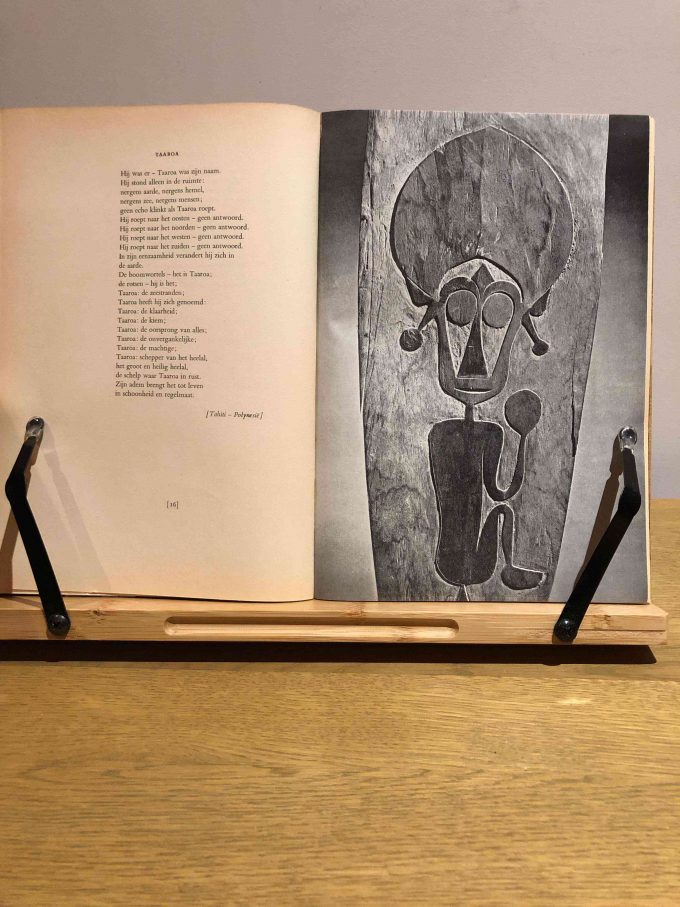 TAAROA
Hij was er – Taaroa was zijn naam.
Hij stond alleen in de ruimte:
nergens aarde, nergens hemel,
nergens zee, nergens mensen;
geen echo klinkt als Taaroa roept.
Hij roept naar het oosten – geen antwoord.
Hij roept naar het noorden – geen antwoord.
Hij roept naar het westen – geen antwoord.
Hij roept naar het zuiden – geen antwoord.
In zijn eenzaamheid verandert hij zich in
de aarde.
De boomwortels – het is Taaroa;
de rotsen – hij is het;
Taaroa: de zeestranden;
Taaroa heeft hij zich genoemd:
Taaroa: de klaarheid;
Taaroa: de kiem;
Taaroa: de oorsprong van alles;
Taaroa: de onvergankelijke;
Taaroa: de machtige;
Taaroa: schepper van het heelal,
het groot en heilig heelal,
de schelp waar Taaroa in rust.
Zijn adem brengt het tot leven
in schoonheid en regelmaat.
[Tahiti – Polynesië]
[26]